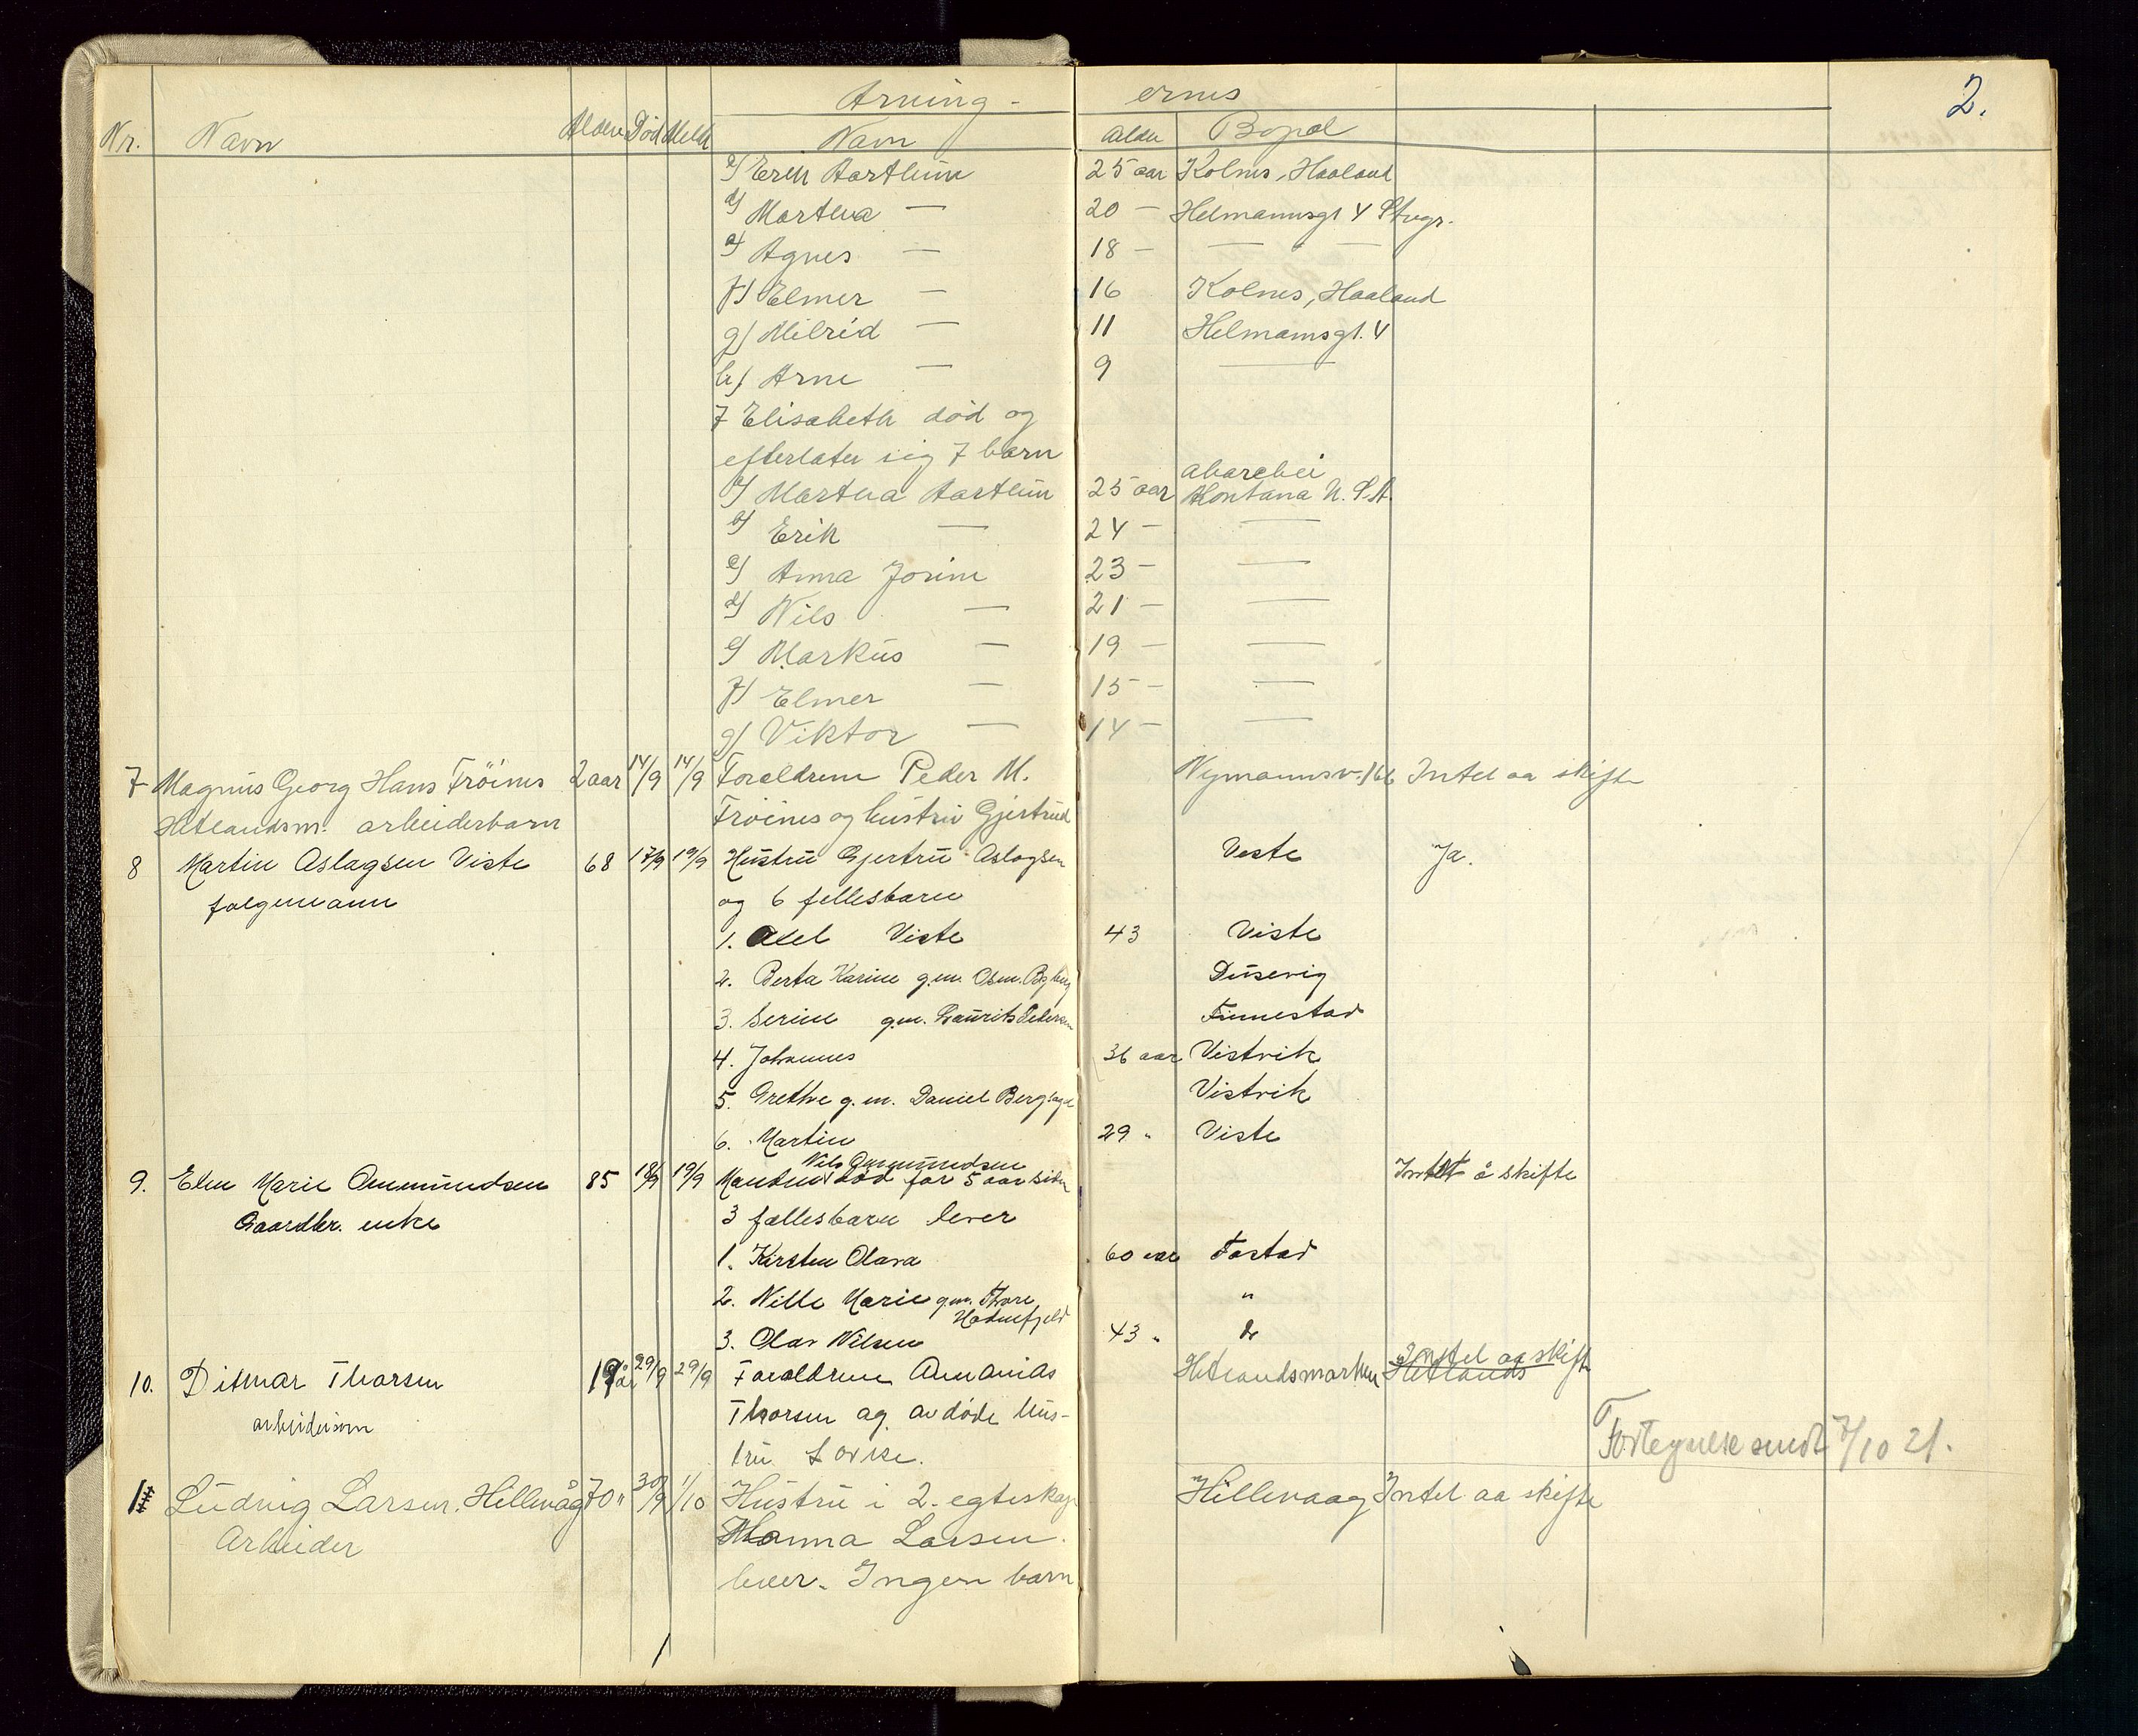 2.
Arving - ernes
Nr. Navn Alder Død Meldt Navn Alder Bopæl
c) Erik Aartun 25 aar Kolnes, Haaland
d) Martha — 20 — Helmannsgt 4 Stvgr.
e) Agnes — 18 — — " —
f) Elmer — 16 Kolnes, Haaland
g) Milrid — 11 Helmansgt. 4
h) Arne — 9 —
7 Elisabeth død og
efterlater sig 7 barn
a) Martha 25 aar Montana U.S.A.
b) Erik — 24 — —
c) Anna 23 — —
d) Nils — 21 — —
e) Markus — 19 — —
f) Elmer — 15 — —
g) Viktor — 14 — —
7 Magnus Georg Hans Fröines 2 aar 14/9 14/9 Foraldrene Peder M. Nymannsv. 166 Intet aa skifte
Hetlandsm. arbeiderbarn Fröines og hustru Gjertrud
8 Martin Aslagsen Viste 68 17/9 19/9 Hustru Gjertru Aslagsen Veste Ja.
folgemann og 6 fellesbarn
1. Axel Viste 43 Viste
2. Berta Karine g.m. Dusevig
3. Serine g.m. Laurits Petersen Finnestad
4. Johannes 36 aar Vistvik
5. Grethe g.m. Daniel Vistvik
6. Martin 29 " Viste
Nils Ommundsen
9. Elen Marie Ommundsen 85 18/9 19/9 Manden død for 5 aar siden Intet å skifte
Gaardbr. enke 3 fællesbarn lever
1. Kirsten Olava 60 aar Tastad
2. Nille Marie g.m. Thore "
Hodnefjeld
3. Olav Nilsen 43 " do
Intet aa skifte
10. Ditmar Thorsen 19 år 29/9 29/9 Foraldrene Ananias Hetlandsmarken Hetlands
arbeidersøn Thorsen og avdøde hus-
tru Lovise. Fortegnelse sendt 7/10 21.
11 Ludvig Larsen, Hillevåg 70 " 30/9 1/10 Hustru i 2. egteskap Hillevaag Intet aa skifte
Arbeider Hanna Larsen
lever. Ingen barn